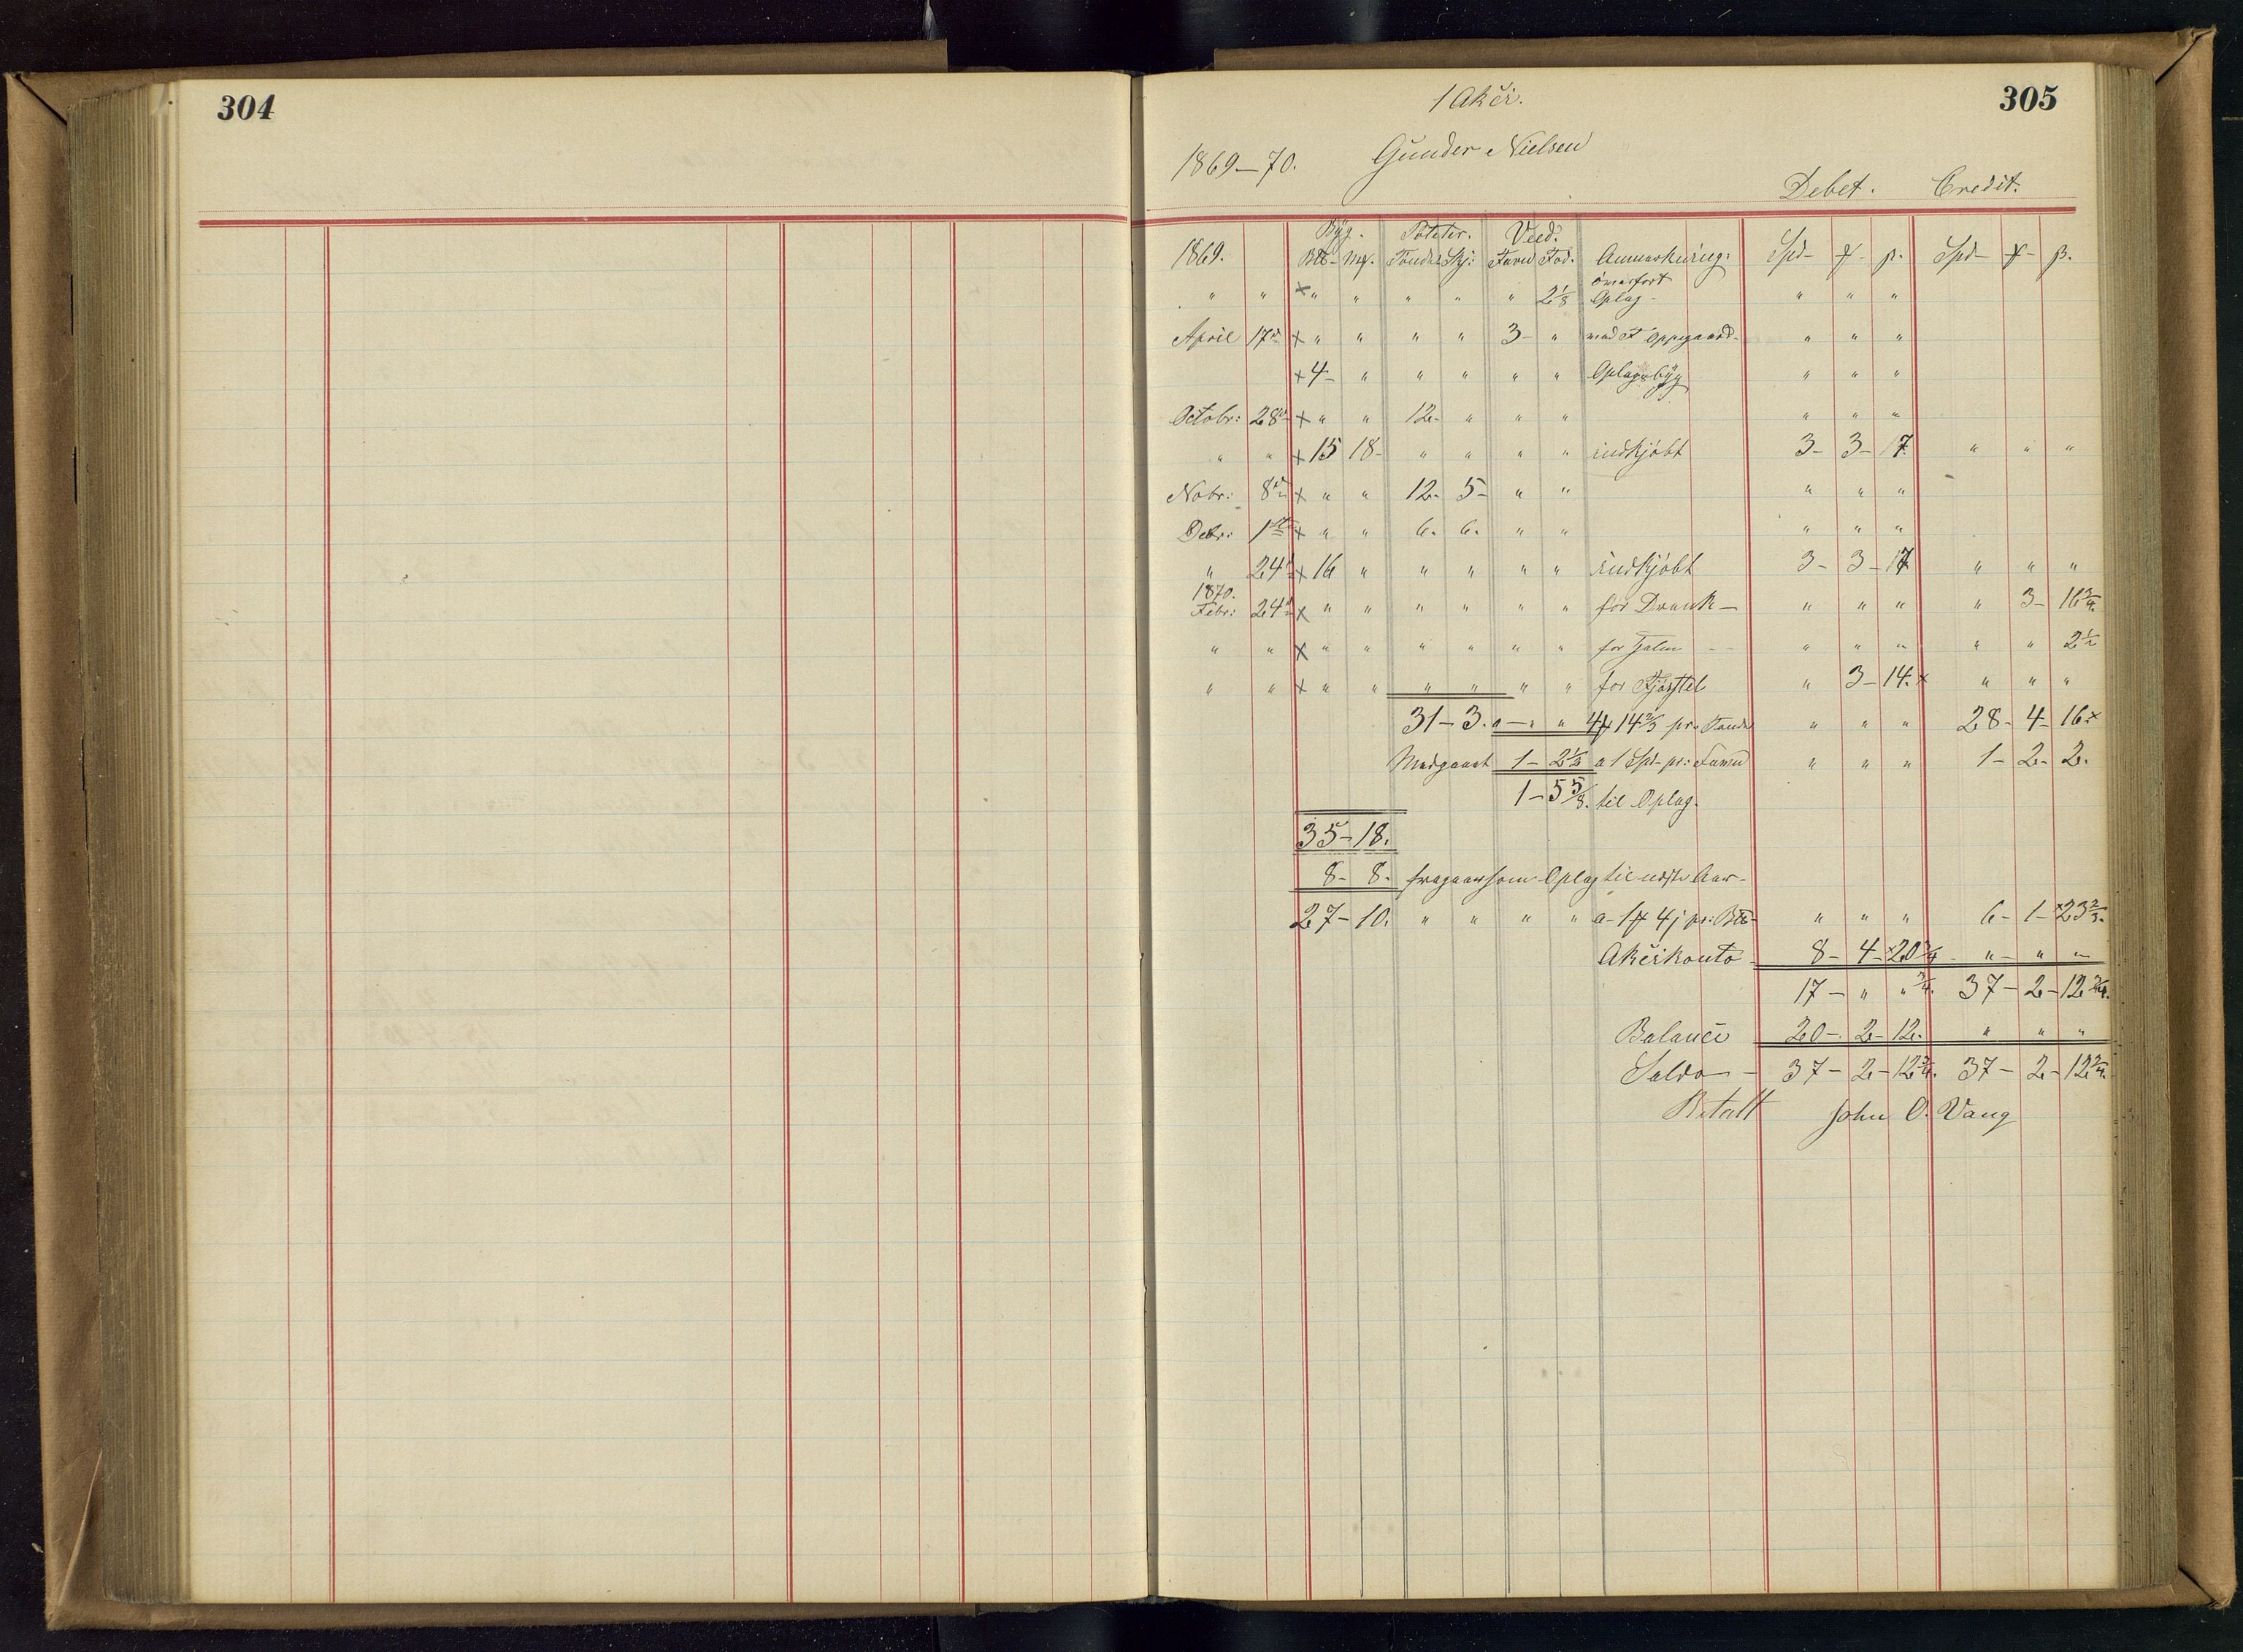 304
1 Akci.
305
1869–70. Gunder Nielsen
Debet. Credit.
Byg. Poteter. Veed.
1869. Btb– Mx. Tønder Skj: Favn Fod. Anmærkning: Spd– ₰– β. Spd– ₰– β.
overført
" " × " " " " " 2 1/8 Oplag– " " "
April 17de × " " " " 3– " ved F Oppegaard– " " "
× 4– " " " " " Oplags byg " " "
Octobr: 28de × " " 12– " " " " " "
" " × 15 18– " " " " indkjøbt 3– 3– 17 " " "
Nobr: 8de × " " 12– 5– " " " " "
Debr: 1ste × " " 6– 6– " " " " "
" 24de × 16 " " " " " indkjøbt 3– 3– 17 " " "
1870.
Febr: 24de × " " " " " " for Drank– " " " " 3– 16 3/4.
" " × " " " " " " for " " " " " 2 1/2
" " × " " " " " " for " 3– 14. × " " "
31– 3. " – " " 4₰ 14 2/3 pr. Tønde " " " 28– 4– 16. ×
Medgaaet 1– 2 1/2 a 1 Spd– pr: Favn " " " 1– 2– 2.
1– 5 5/8. til Oplag.
35– 18.
8– 8. fragaar som Oplag til næste Aar–
27– 10. " " " " a– 1₰ 4 pr: Btb– " " " 6– 1– ×23 2/3.
Akcikonto– 8– 4– ×20 3/4– "– "– "–
17– " " 3/4. 37– 2– 12 3/4.
Balance 20– 2– 12. " " "
Saldo– 37– 2– 12 3/4. 37– 2– 12 3/4.
Betalt John O. Vang